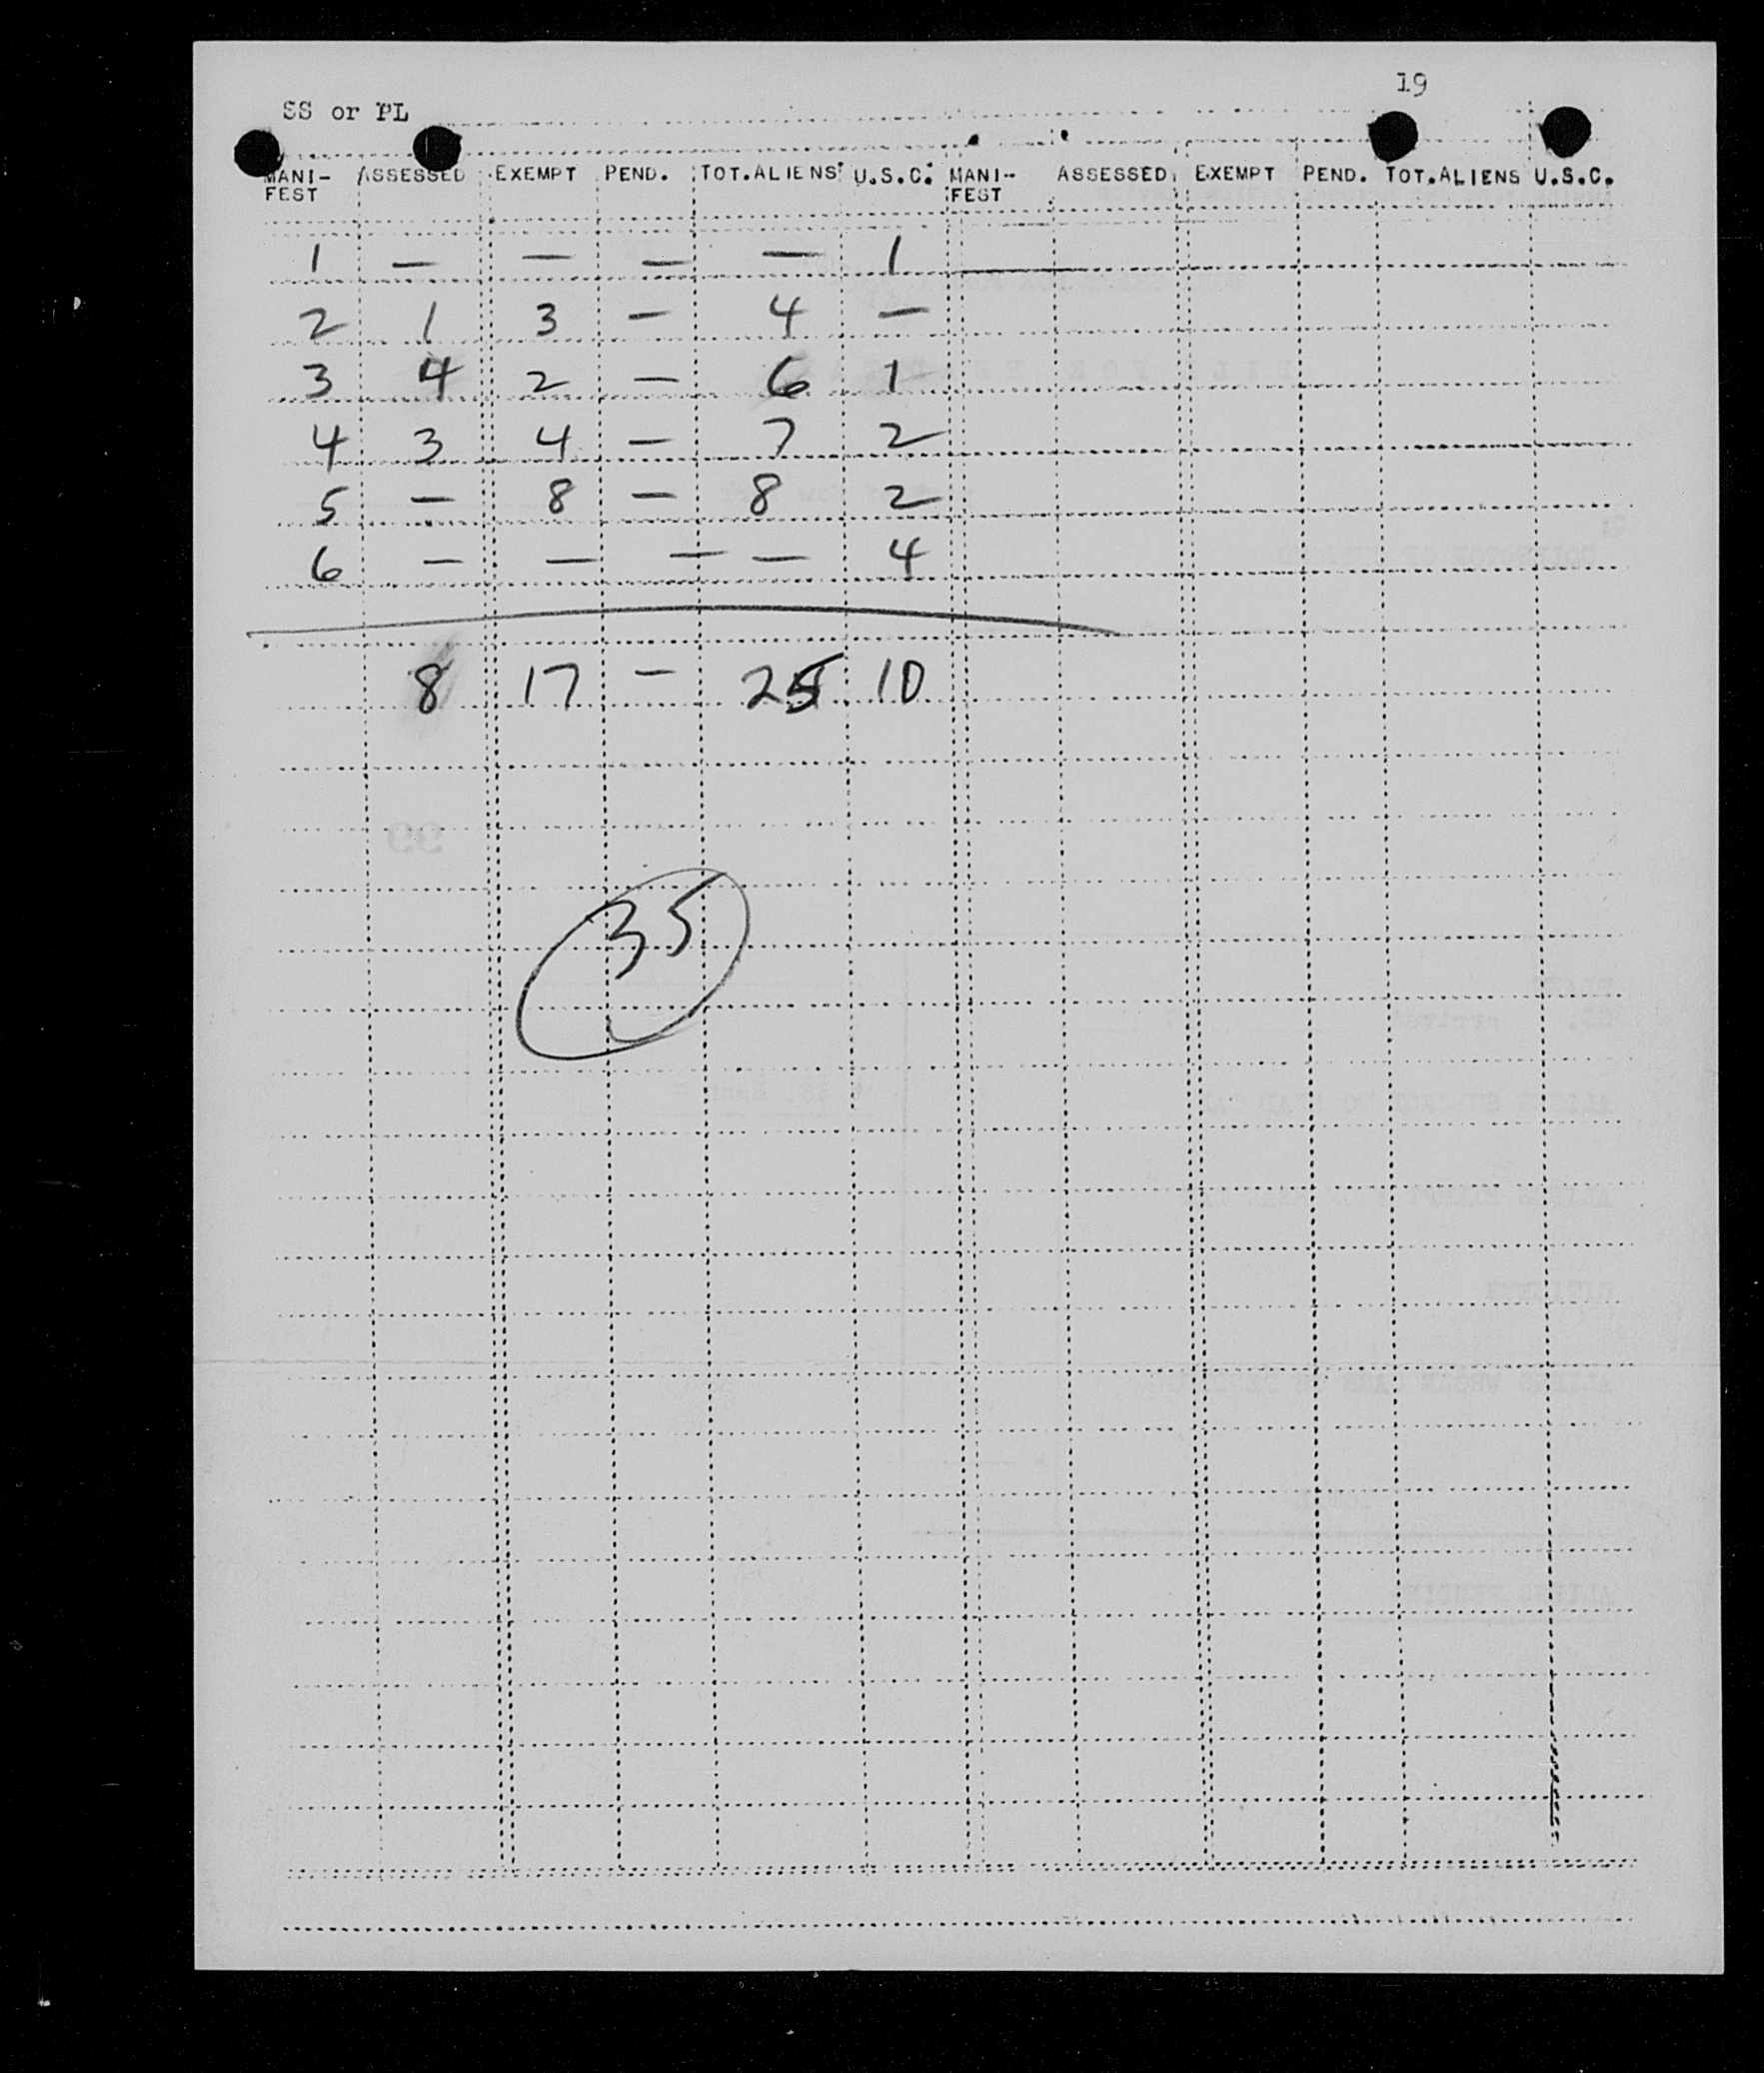 19
SS or PL
MANI- ASSESSED EXEMPT PEND. TOT.ALIENS U.S.C. MANI- ASSESSED EXEMPT PEND. TOT.ALIENS U.S.C.
FEST FEST
1 — — — — 1
2 1 3 — 4 —
3 4 2 — 6 1
4 3 4 — 7 2
5 — 8 — 8 2
6 — — — — 4
8 17 — 25 10
35